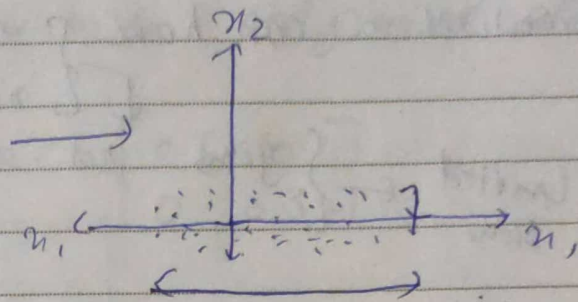 x₂
x₁ x₁